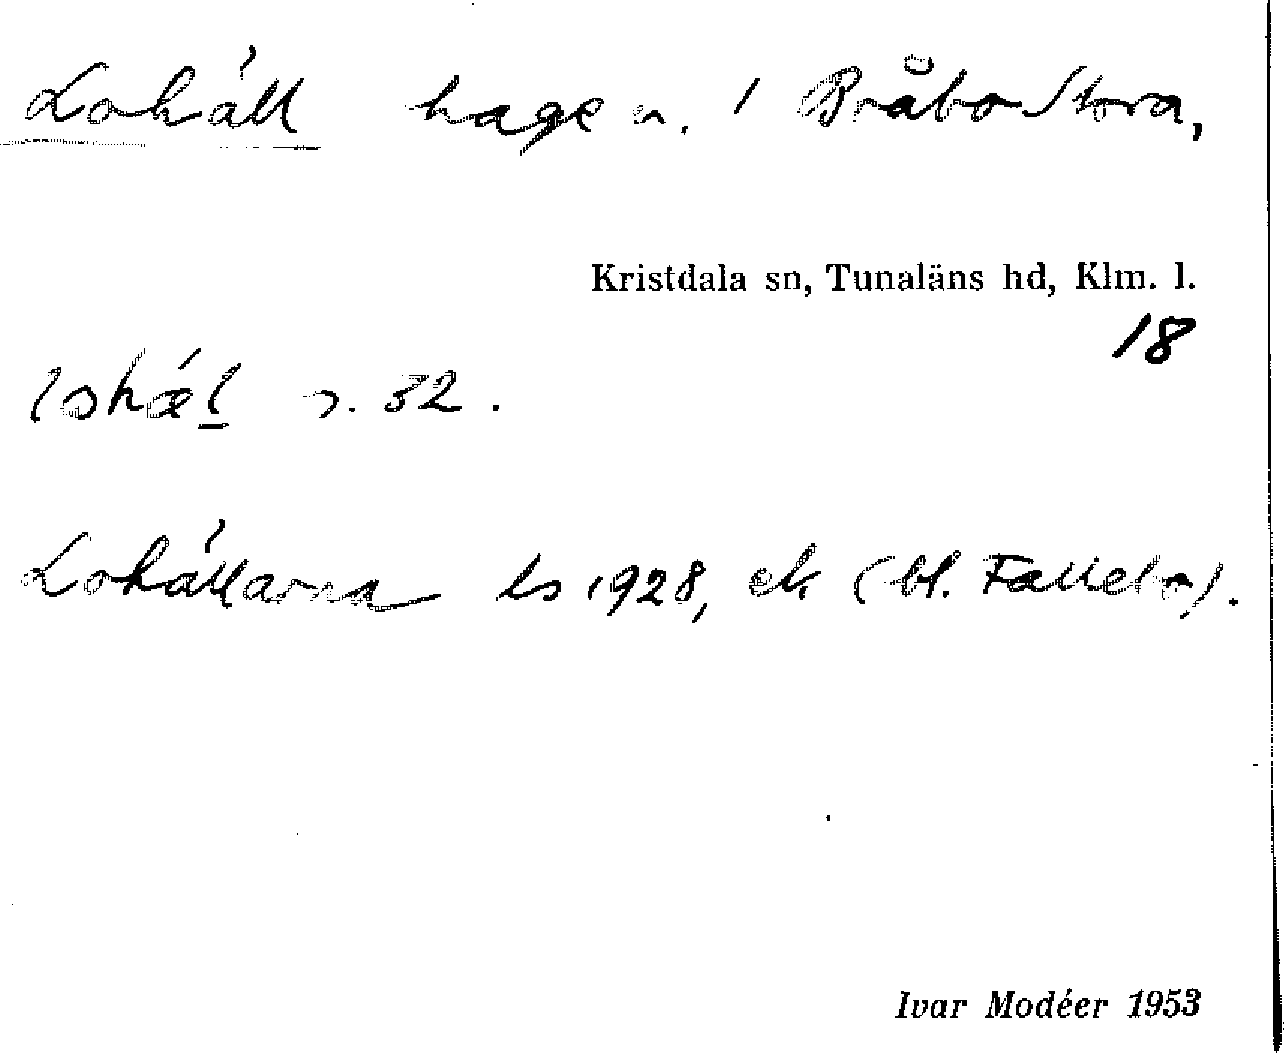 Lohäll hage n. i Bråbo Stora,
Kristdala sn, Tunaläns hd, Klm. l.
18
lohæ´l s. 32.
Lohällarna ls 1928, ek (bl. Fallebo).
Ivar Modéer 1953